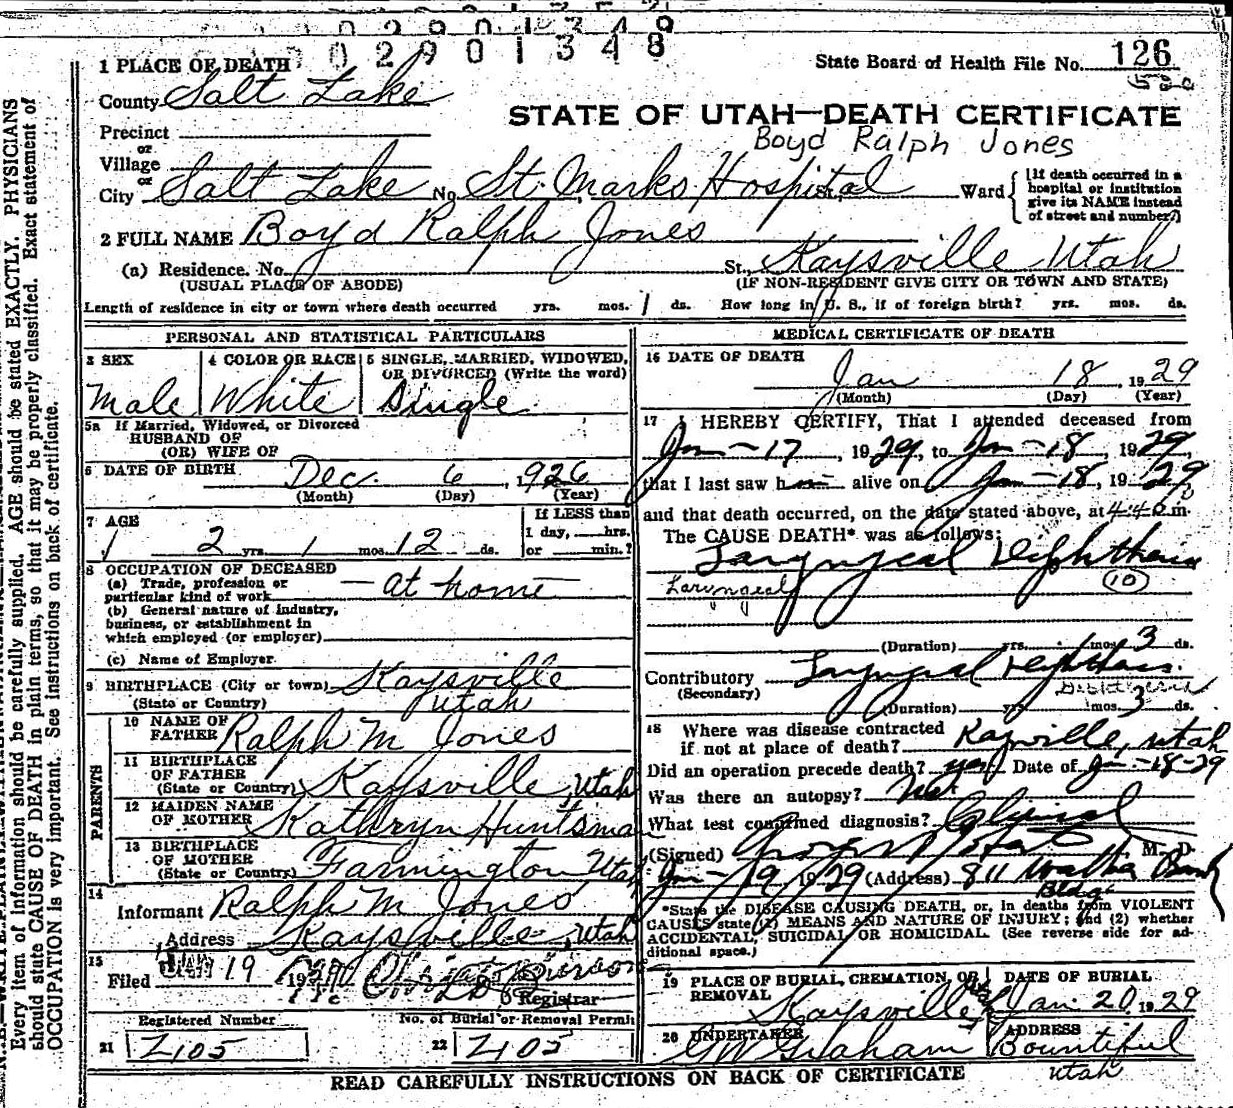 02901348
1 PLACE OF DEATH
State Board of Health File No. 126
County Salt Lake
STATE OF UTAH—DEATH CERTIFICATE
Boyd Ralph Jones
Precinct
or
Village
or
City Salt Lake No. St. Marks Hospital St., Ward
[If death occurred in a
hospital or institution
give its NAME instead
of street and number.]
2 FULL NAME Boyd Ralph Jones
(a) Residence. No. St., Kaysville Utah
(USUAL PLACE OF ABODE) (IF NON-RESIDENT GIVE CITY OR TOWN AND STATE)
Length of residence in city or town where death occurred yrs. mos. 1 ds. How long in U. S., if of foreign birth? yrs. mos. ds.
PERSONAL AND STATISTICAL PARTICULARS
3 SEX
Male
4 COLOR OR RACE
White
5 SINGLE, MARRIED, WIDOWED,
OR DIVORCED (Write the word)
Single
5a If Married, Widowed, or Divorced
HUSBAND OF
(OR) WIFE OF
6 DATE OF BIRTH Dec. 6, 1926
(Month) (Day) (Year)
7 AGE
2 yrs. 1 mos. 12 ds.
If LESS than
1 day, hrs.
or min.?
8 OCCUPATION OF DECEASED
(a) Trade, profession or
particular kind of work at home
(b) General nature of industry,
business, or establishment in
which employed (or employer)
(c) Name of Employer
9 BIRTHPLACE (City or town) Kaysville
(State or Country) Utah
PARENTS
10 NAME OF
FATHER Ralph M Jones
11 BIRTHPLACE
OF FATHER
(State or Country) Kaysville, Utah
12 MAIDEN NAME
OF MOTHER Kathryn Huntsman
13 BIRTHPLACE
OF MOTHER
(State or Country) Farmington Utah
14
Informant Ralph M Jones
Address Kaysville, Utah
15
Filed JAN 19 19
Registrar
Registered Number
No. of Burial or Removal Permit
21 Z105
22 Z105
MEDICAL CERTIFICATE OF DEATH
16 DATE OF DEATH
Jan 18, 1929
(Month) (Day) (Year)
17 I HEREBY CERTIFY, That I attended deceased from
Jan-17, 1929, to Jan-18, 1929
that I last saw him alive on Jan-18, 1929
and that death occurred, on the date stated above, at m.
The CAUSE DEATH* was as follows:
Laryngeal Diphtheria
Laryngeal (10)
(Duration) yrs. mos. 3 ds.
Contributory Laryngeal Diphtheria
(Secondary) Diphtheria
(Duration) yrs. mos. 3 ds.
18 Where was disease contracted
if not at place of death? Kaysville, Utah
Did an operation precede death? yes Date of Jan-18-29
Was there an autopsy?
What test confirmed diagnosis? Clinical
(Signed) M. D.
Jan-19, 1929 (Address) 811 Walker Bank
Bldg.
*State the DISEASE CAUSING DEATH, or, in deaths from VIOLENT
CAUSES state (1) MEANS AND NATURE OF INJURY; and (2) whether
ACCIDENTAL, SUICIDAL OR HOMICIDAL. (See reverse side for ad-
ditional space.)
19 PLACE OF BURIAL, CREMATION, OR
REMOVAL
Kaysville Utah
DATE OF BURIAL
Jan 20, 1929
20 UNDERTAKER
GW Graham
ADDRESS
Bountiful
Utah
READ CAREFULLY INSTRUCTIONS ON BACK OF CERTIFICATE
Every item of information should be carefully supplied. AGE should be stated EXACTLY. PHYSICIANS
should state CAUSE OF DEATH in plain terms, so that it may be properly classified. Exact statement of
OCCUPATION is very important. See instructions on back of certificate.